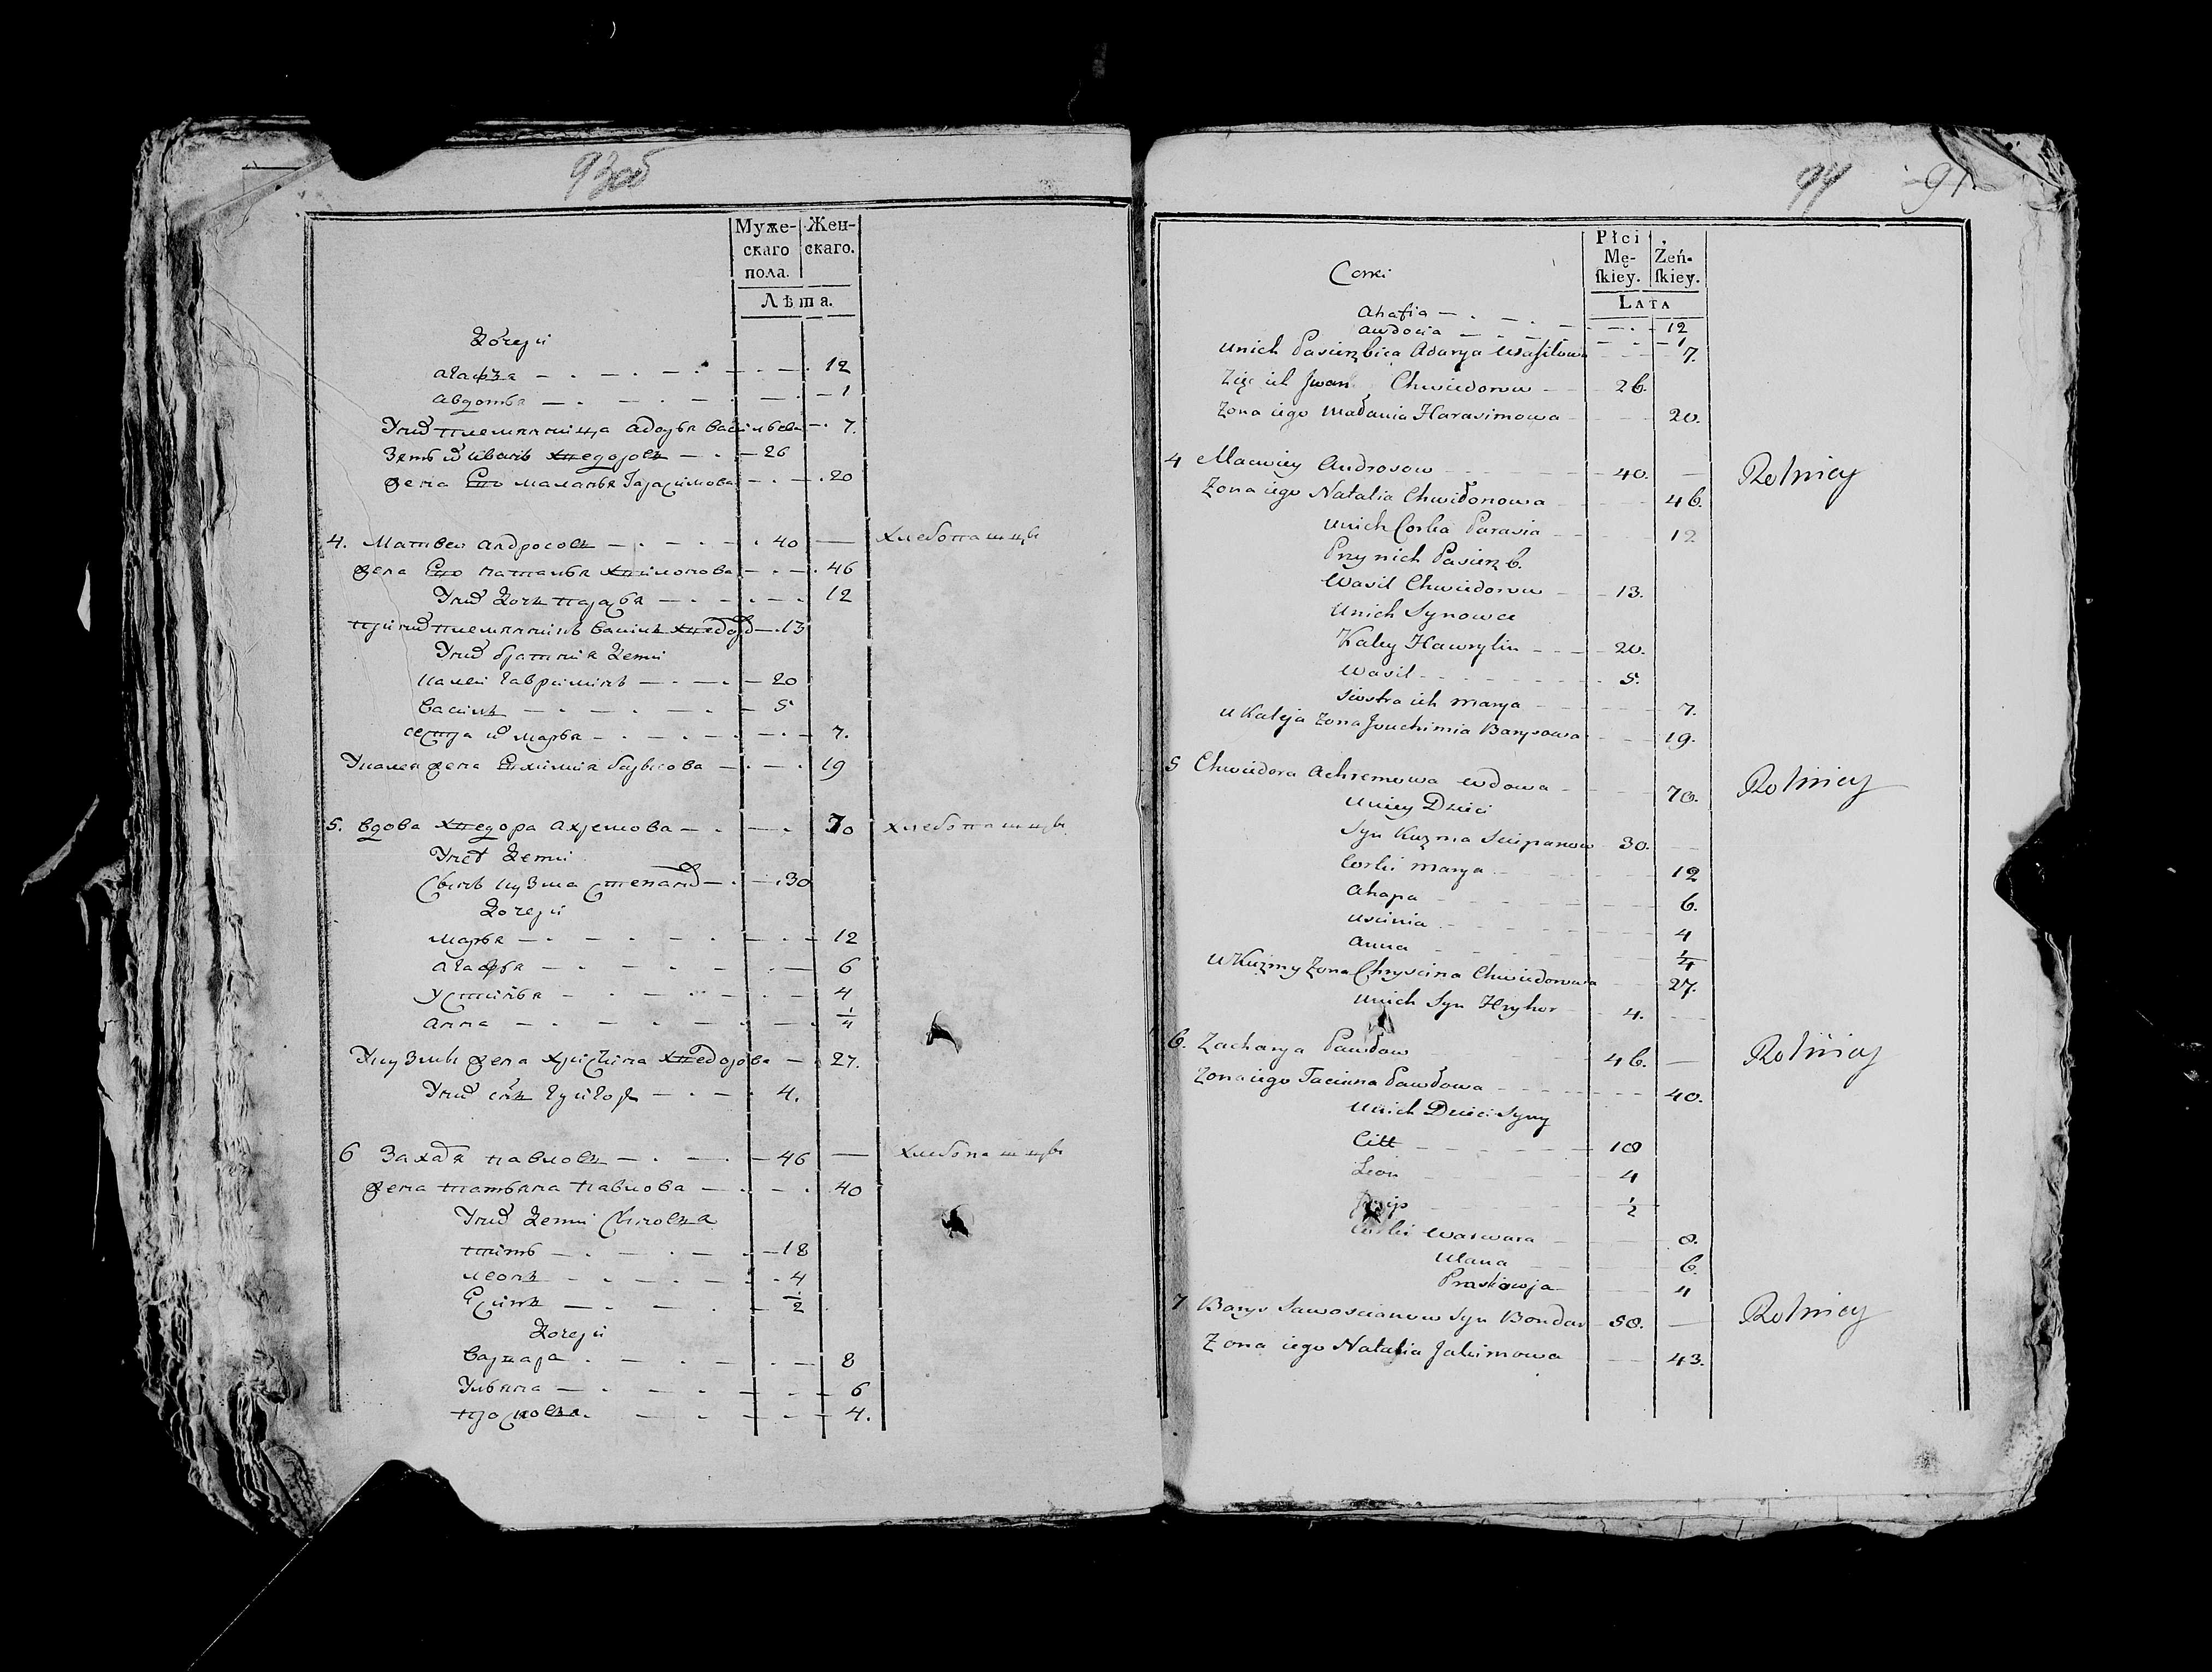 93об
Муже-
скаго
пола.
Жен-
скаго.
Лѣта.
Дочери
Агафья — 12
Авдотья — 1
У них племянница Адарья Васильева — 7.
Зять их Иванъ Хведоровъ — 26
Жена его Маланья Гарасимова — 20
4. Матвей Андросовъ — 40 — хлебопашцы
Жена его Наталья Хвилонова — 46
У них дочь Парасья — 12
При них племянникъ Василь Хведоров — 13
У них братния дети
Калей Гаврилинъ — 20
Василь — 5
Сестра их Марья — 7.
У Калея жена Евхимия Барысова — 19
5. Вдова Хведора Ахремова — 70 хлебопашцы
У нея дети
Сынъ Кузма Степанов — 30
Дочери
Марья — 12
Агафья — 6
Устинья — 4
Анна — 1/4
У Кузмы жена Христина Хведорова — 27.
У них сынъ Григор — 4.
6 Захаря Павловъ — 46 — хлебопашцы
Жена Татьяна Павлова — 40
У них дети сыновья
Титъ — 18
Леонъ — 4
Есипъ — 1/2
Дочери
Варвара — 8
Ульяна — 6
Просковья — 4.
94 91
Płci
Mę-
ſkiey.
Żeń-
ſkiey.
LATA
Corki
Ahafia — 12
Awdocia — 1
unich Pasierzbica Adarya Wasilowa 7.
Zięć ich Jwan Chwiedorow — 26.
Zona iego Małania Harasimowa 20.
4 Maciwiey Androsow 40. — Rolnicy
Zona iego Natalia Chwiłonowa 46.
unich Corka Parasia 12
Przy nich Pasierzb.
Wasil Chwiedorow 13.
unich Synowce
Kaley Hawrylin 20.
Wasil 5.
Siostra ich Marya 7.
u Kaleja Zona Jouchimia Barysowa 19.
5 Chwiedora Achremowa wdowa 70. Rolnicy
uniey Dzieci
Syn Kuzma Sciepanow 30.
Corki Marya 12
Ahapa 6.
Uscinia 4
Anna 1/4
u Kuzmy Zona Chryscina Chwiedorowa 27.
unich Syn Hryhor 4.
6. Zacharya Pawłow 46. — Rolnicy
Zona iego Tacianna Pawłowa 40.
unich Dzieci Syny
Citt 18
Leon 4
1/2
Corki Warwara 8.
Ulana 6.
Praskowja 4
7 Barys Sawoscianow Syn Bondar 50. — Rolnicy
Zona iego Natalia Jakimowa 43.